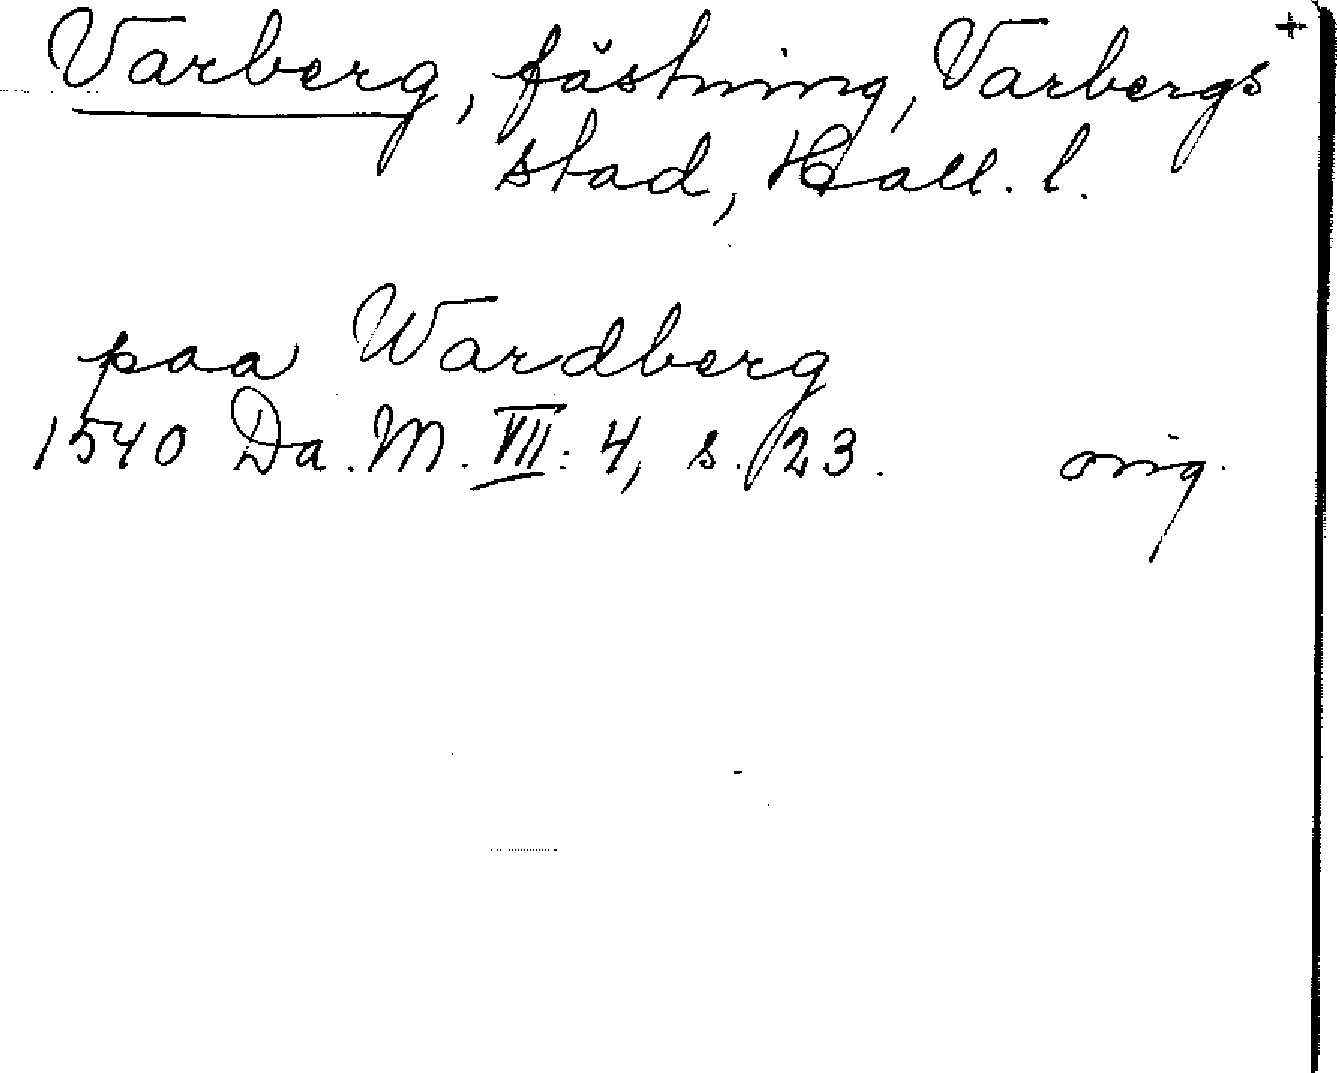 Varberg, fästning, Varbergs +
stad, Hall. l.
paa Wardberg
1540 Da. M. VII: 4, s. 23. orig.